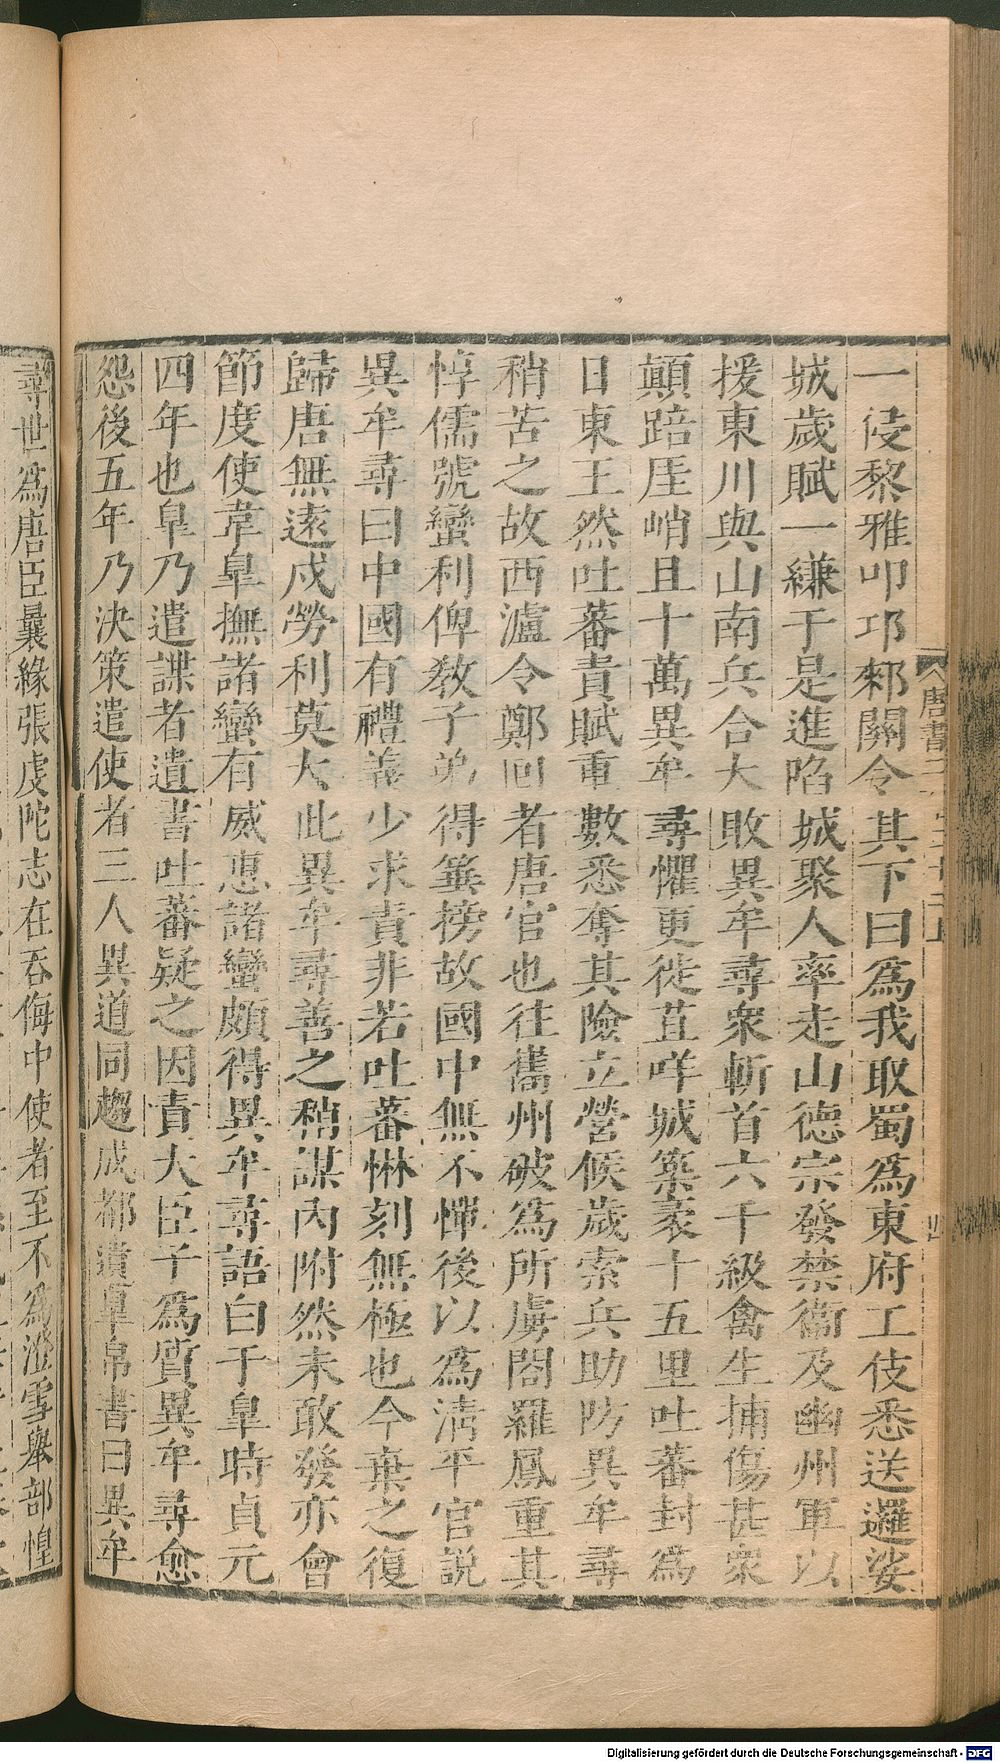 一侵黎雅叩邛郲關令其下曰爲我取蜀爲東府工伎悉送邏娑
城歲賦一縑于是進陷城聚人率走山德宗發禁衞及幽州軍以
援東川與山南兵合大敗異牟尋衆斬首六千級禽生捕傷甚衆
顚踣厓峭且十萬異牟尋懼更徙苴咩城築袤十五里吐蕃封爲
日東王然吐蕃責賦重數悉奪其險立營候歲索兵助防異牟尋
稍苦之故西瀘令鄭回者唐官也往巂州破爲所虜閤羅鳳重其
惇儒號蠻利俾敎子弟得箠搒故國中無不憚後以爲淸平官説
異牟尋曰中國有禮義少求責非若吐蕃惏刻無極也今棄之復
歸唐無遠戍勞利莫大此異牟尋善之稍謀內附然未敢發亦會
節度使韋皐撫諸蠻有威惠諸蠻頗得異牟尋語白于皐時貞元
四年也皐乃遣諜者遺書吐蕃疑之因責大臣子爲質異牟尋愈
怨後五年乃決策遣使者三人異道同趨成都遺皐帛書曰異牟
尋世爲唐臣曩緣張虔陀志在吞侮中使者至不爲澄雪舉部惶
唐書
四
Digitalisierung gefördert durch die Deutsche Forschungsgemeinschaft - DFG